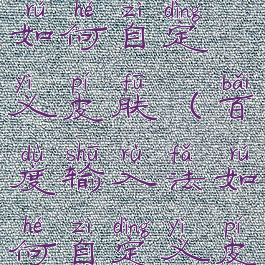 rú hé zì dìng
如何自定
yì pí fū bǎi
义皮肤（百
dù shū rù fǎ rú
度输入法如
hé zì dìng yì pí
何自定义皮